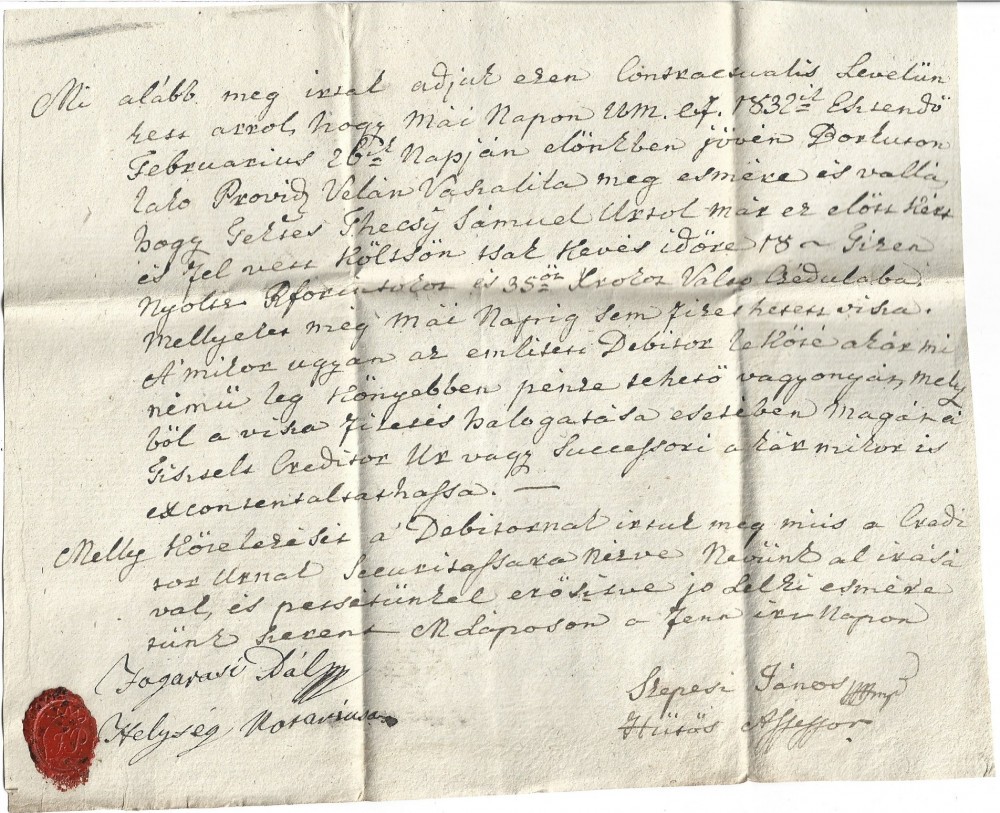 Mi alább meg irtak adjuk ezen Contractualis Levelün
kett arrol, hogy Mái Napon Um. e.f. 1832ik Esztendö
Februarius 26dik Napján elönkben jövén Borkuton
lako Provid Velán Vaszalika meg esmére és vallá,
hogy Tektés Thecsÿ Sámuel Urtol már ez elött Kért
és fel vett Költsön tsak Kevés idöre 18 ~ Tizen
Nyoltz Rforintokot és 35öt Xrokot Valto Czédulaba,
Mellyeket még Mái Napig Sem fizethetett visza.
A mikor ugyan az emlitett Debitor le Köté akár mi
némü leg Könyebben pénze tehetö vagyonyán, Mely
böl a visza fizetés halogatása esetében Magát á
Tisztelt Creditor Ur vagy Successori akármikor is
excontentaltathassa. —
Melly Kötelezését á Debitornak irtuk meg miis a Credi
tor Urnak Securitassara Nézve Nevünk al irásá
val, és petsétünkel erösitve jo Lelki esmére
tünk szerent M Láposon a fenn irt Napon
Fogarasi Pál
Helység Notariusa
Szepesi János mp
Hütös Assessor